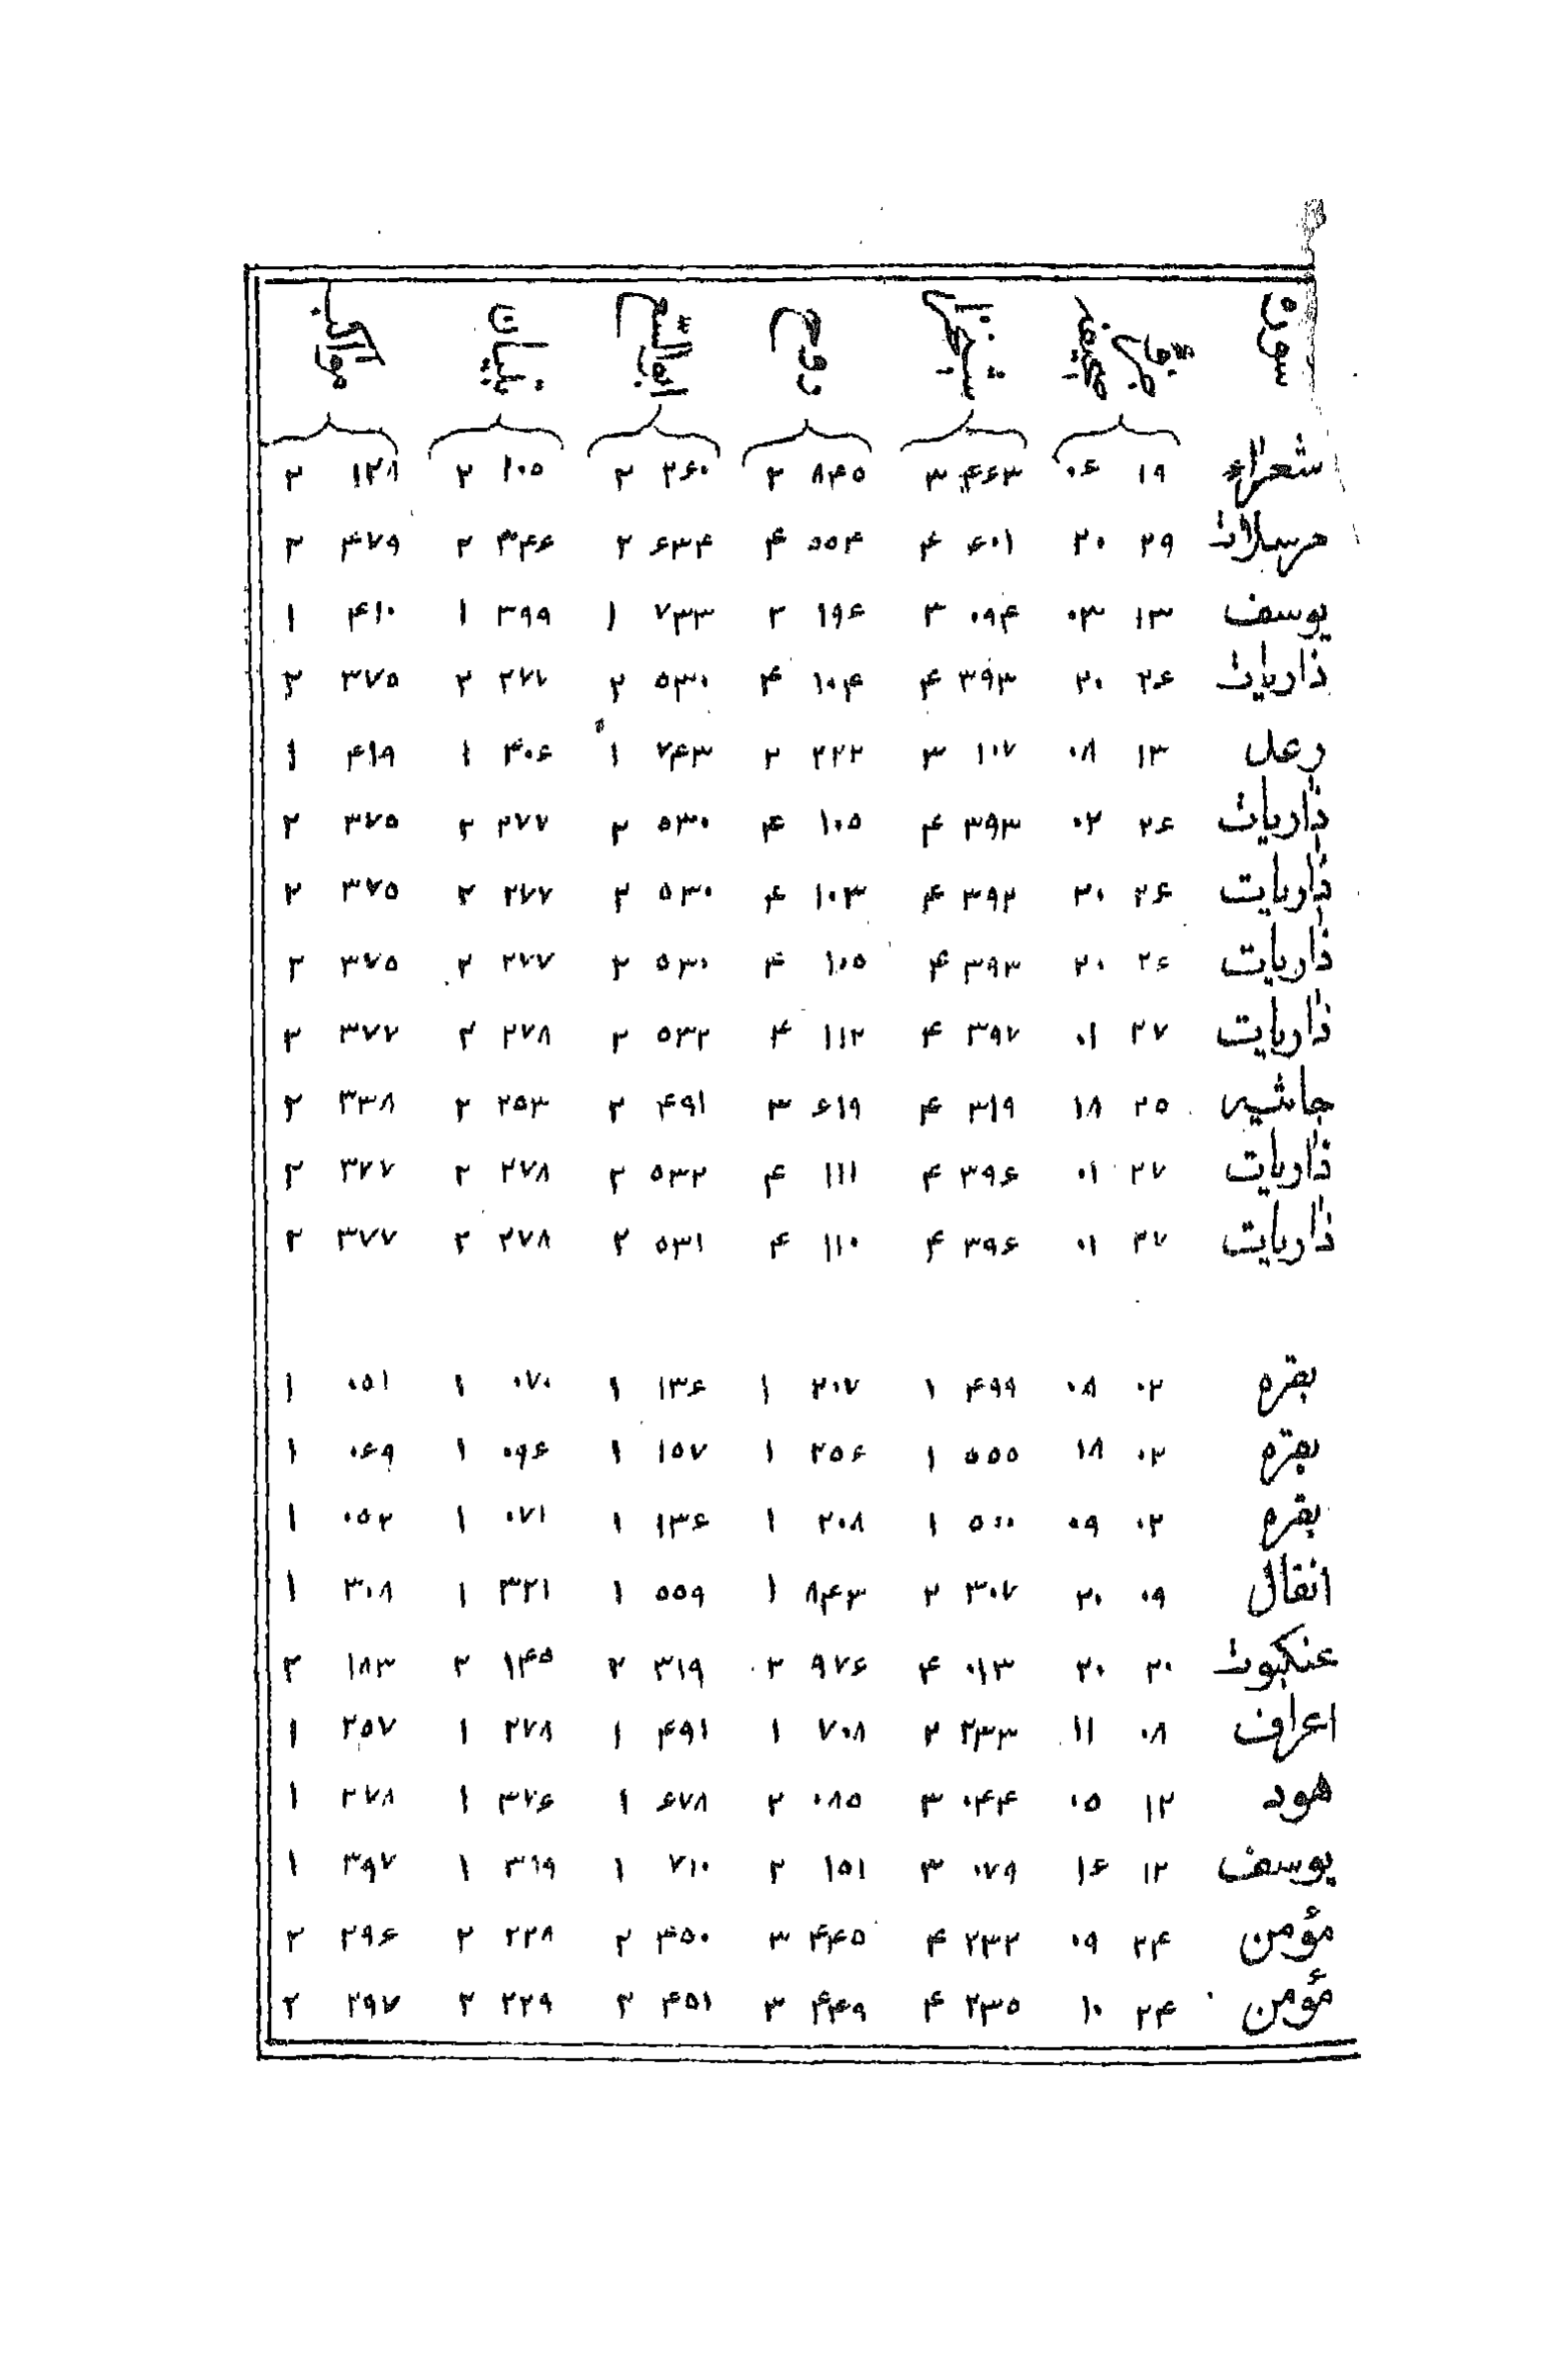 سوره روح ابوالليث تبيان مواكب
شعراء ۱۹ ۰۶ ۴۶۳ ۳ ۸۴۵ ۲ ۲۶۰ ۲ ۱۰۵ ۲ ۱۲۸ ۲
مرسلات ۲۹ ۲۰ ۶۰۱ ۴ ۵۵۴ ۴ ۶۳۴ ۲ ۳۴۶ ۲ ۴۷۹ ۲
يوسف ۱۳ ۰۳ ۰۹۴ ۳ ۱۹۶ ۲ ۷۳۳ ۱ ۳۹۹ ۱ ۴۱۰ ۱
ذاريات ۲۶ ۲۰ ۳۹۳ ۴ ۱۰۴ ۴ ۵۳۰ ۲ ۲۷۷ ۲ ۳۷۵ ۲
رعد ۱۳ ۰۸ ۱۰۷ ۳ ۲۲۲ ۲ ۷۴۳ ۱ ۴۰۶ ۱ ۴۱۹ ۱
ذاريات ۲۶ ۰۲ ۳۹۳ ۴ ۱۰۵ ۴ ۵۳۰ ۲ ۲۷۷ ۲ ۳۷۵ ۲
ذاريات ۲۶ ۲۰ ۳۹۲ ۴ ۱۰۳ ۴ ۵۳۰ ۲ ۲۷۷ ۲ ۳۷۵ ۲
ذاريات ۲۶ ۲۰ ۳۹۳ ۴ ۱۰۵ ۴ ۵۳۰ ۲ ۲۷۷ ۲ ۳۷۵ ۲
ذاريات ۲۷ ۰۱ ۳۹۷ ۴ ۱۱۲ ۴ ۵۳۲ ۲ ۲۷۸ ۲ ۳۷۷ ۲
جاثيه ۲۵ ۱۸ ۳۱۹ ۴ ۶۱۹ ۳ ۴۹۱ ۲ ۲۵۳ ۲ ۳۳۸ ۲
ذاريات ۲۷ ۰۱ ۳۹۶ ۴ ۱۱۱ ۴ ۵۳۲ ۲ ۲۷۸ ۲ ۳۷۷ ۲
ذاريات ۲۷ ۰۱ ۳۹۶ ۴ ۱۱۰ ۴ ۵۳۱ ۲ ۲۷۸ ۲ ۳۷۷ ۲
بقره ۰۲ ۰۸ ۴۹۹ ۱ ۲۰۷ ۱ ۱۳۶ ۱ ۰۷۰ ۱ ۰۵۱ ۱
بقره ۰۲ ۱۸ ۵۵۵ ۱ ۲۵۶ ۱ ۱۵۷ ۱ ۰۹۶ ۱ ۰۶۹ ۱
بقره ۰۲ ۰۹ ۵۰۰ ۱ ۲۰۸ ۱ ۱۳۶ ۱ ۰۷۱ ۱ ۰۵۲ ۱
انفال ۰۹ ۲۰ ۳۰۷ ۲ ۸۴۳ ۱ ۵۵۹ ۱ ۳۲۱ ۱ ۳۰۸ ۱
عنكبوت ۲۰ ۲۰ ۰۱۳ ۴ ۹۷۶ ۲ ۳۱۹ ۲ ۱۴۵ ۲ ۱۸۳ ۲
اعراف ۰۸ ۱۱ ۲۳۳ ۲ ۷۰۸ ۱ ۴۹۱ ۱ ۲۷۸ ۱ ۲۵۷ ۱
هود ۱۲ ۰۵ ۰۴۴ ۳ ۰۸۵ ۲ ۶۷۸ ۱ ۳۷۶ ۱ ۲۷۸ ۱
يوسف ۱۲ ۱۶ ۰۷۹ ۳ ۱۵۱ ۲ ۷۱۰ ۱ ۳۱۹ ۱ ۳۹۷ ۱
مؤمن ۲۴ ۰۹ ۲۳۲ ۴ ۴۴۵ ۳ ۴۵۰ ۲ ۲۲۸ ۲ ۲۹۶ ۲
مؤمن ۲۴ ۱۰ ۲۳۵ ۴ ۴۴۹ ۳ ۴۵۱ ۲ ۲۲۹ ۲ ۲۹۷ ۲